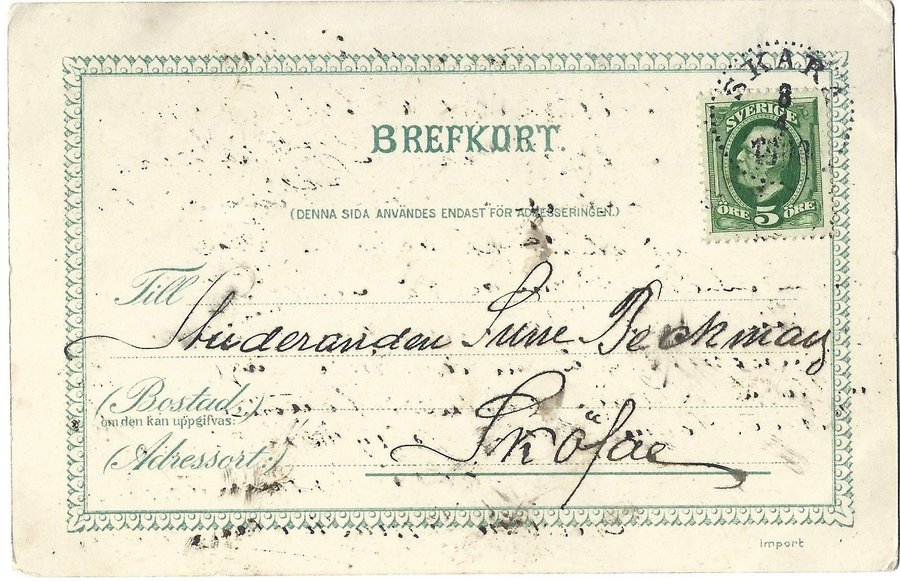 BREFKORT.
(DENNA SIDA ANVÄNDES ENDAST FÖR ADRESSERINGEN.)
SKARA
8
4
SVERIGE
ÖRE 5 ÖRE
Till Studeranden Sune Beckman
(Bostad:)
om den kan uppgifvas.
(Adressort:) Sköfde
Import